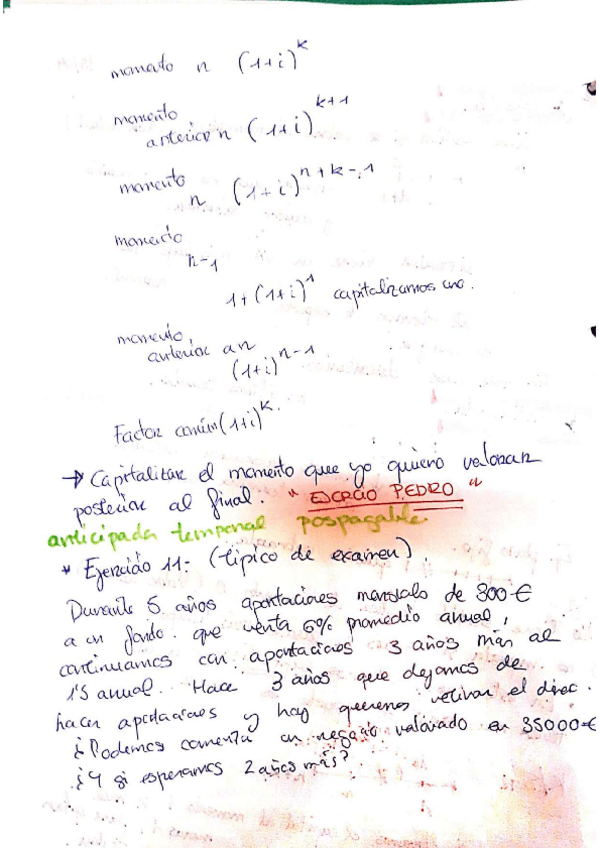 momento n (1+i)^k
momento
anterior n (1+i)^{k+1}
momento
n (1+i)^{n+k-1}
momento
n-1
1+(1+i)^1 capitalizamos uno.
momento
anterior an
(1+i)^{n-1}
Factor común (1+i)^k.
→ Capitalizar el momento que yo quiero valorar
posterior al final. " PEDRO "
anticipada temporal pospagable
* Ejercicio 11: (típico de examen).
Durante 5 años aportaciones mensuales de 300€
a un fondo que renta 6% promedio anual,
continuamos con aportaciones 3 años más al
1'5 anual. Hace 3 años que dejamos de
hacer aportaciones y hoy queremos retirar el dinero.
¿Podemos comenzar un negocio valorado en 35000€
¿Y si esperamos 2 años más?